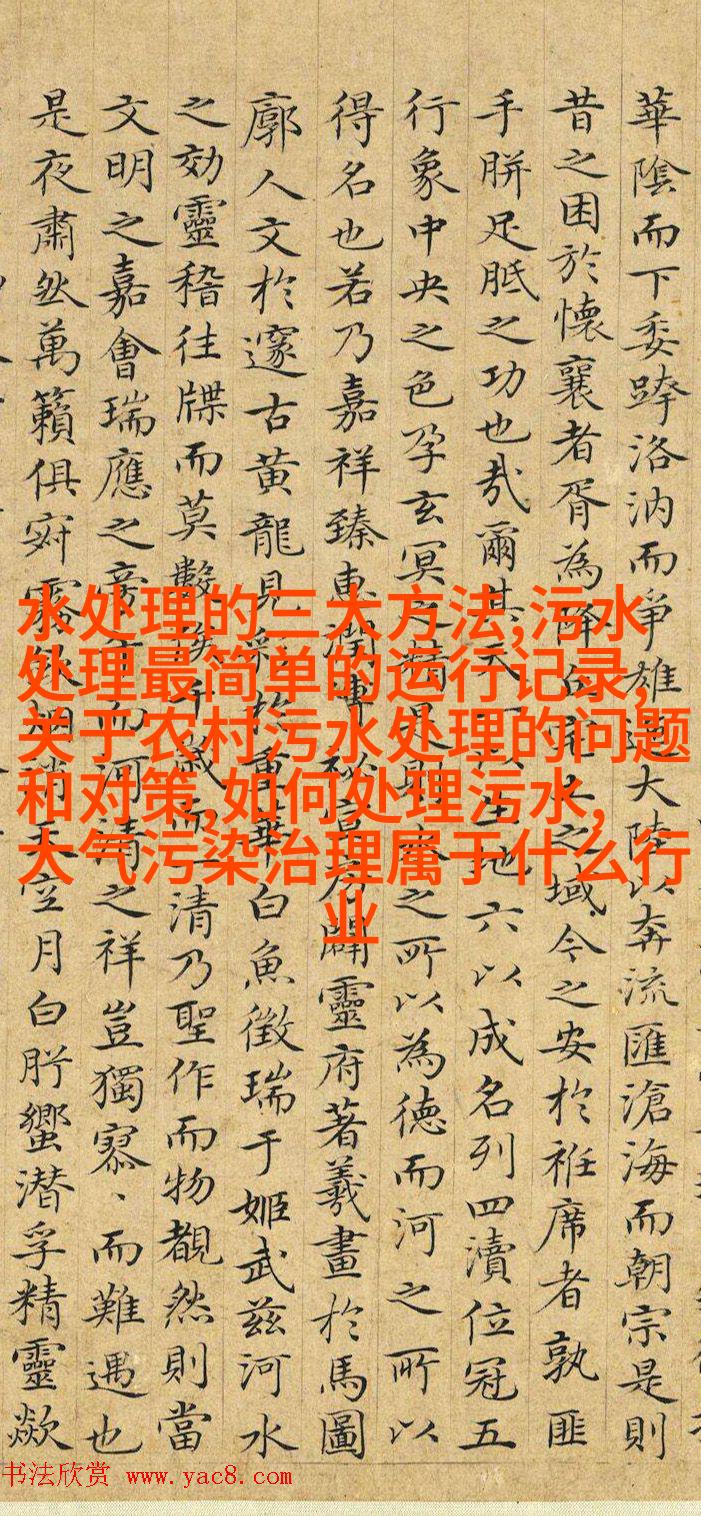 華陰而下委跨洛汭而爭雄大陸以奔流匯滄海而朝宗是則
昔之困於懷襄者胥為降之域今之安於袵席者孰匪
手胼足胝之功也哉爾其天一以生地六以成名列四瀆位冠五
行象中央之色孕玄冥之精是則之所以為德而河之所以
得名也若乃嘉祥臻惠闢靈府著羲畫於馬圖
廓人文於邃古黃龍見於重華白魚徵瑞于姬武茲河水
之効靈稽往牒而莫數俟千歲而一清乃聖作而物覩然則當
文明之嘉會瑞應之而河清之祥豈獨寡、而難遇也
是夜肅然萬籟俱寂露烟消天空月白肸蠁潛孚精靈歘
水处理的三大方法,污水
处理最简单的运行记录,
关于农村污水处理的问题
和对策, 如何处理污水,
大气污染治理属于什么行
业
书法欣赏 www.yac8.com